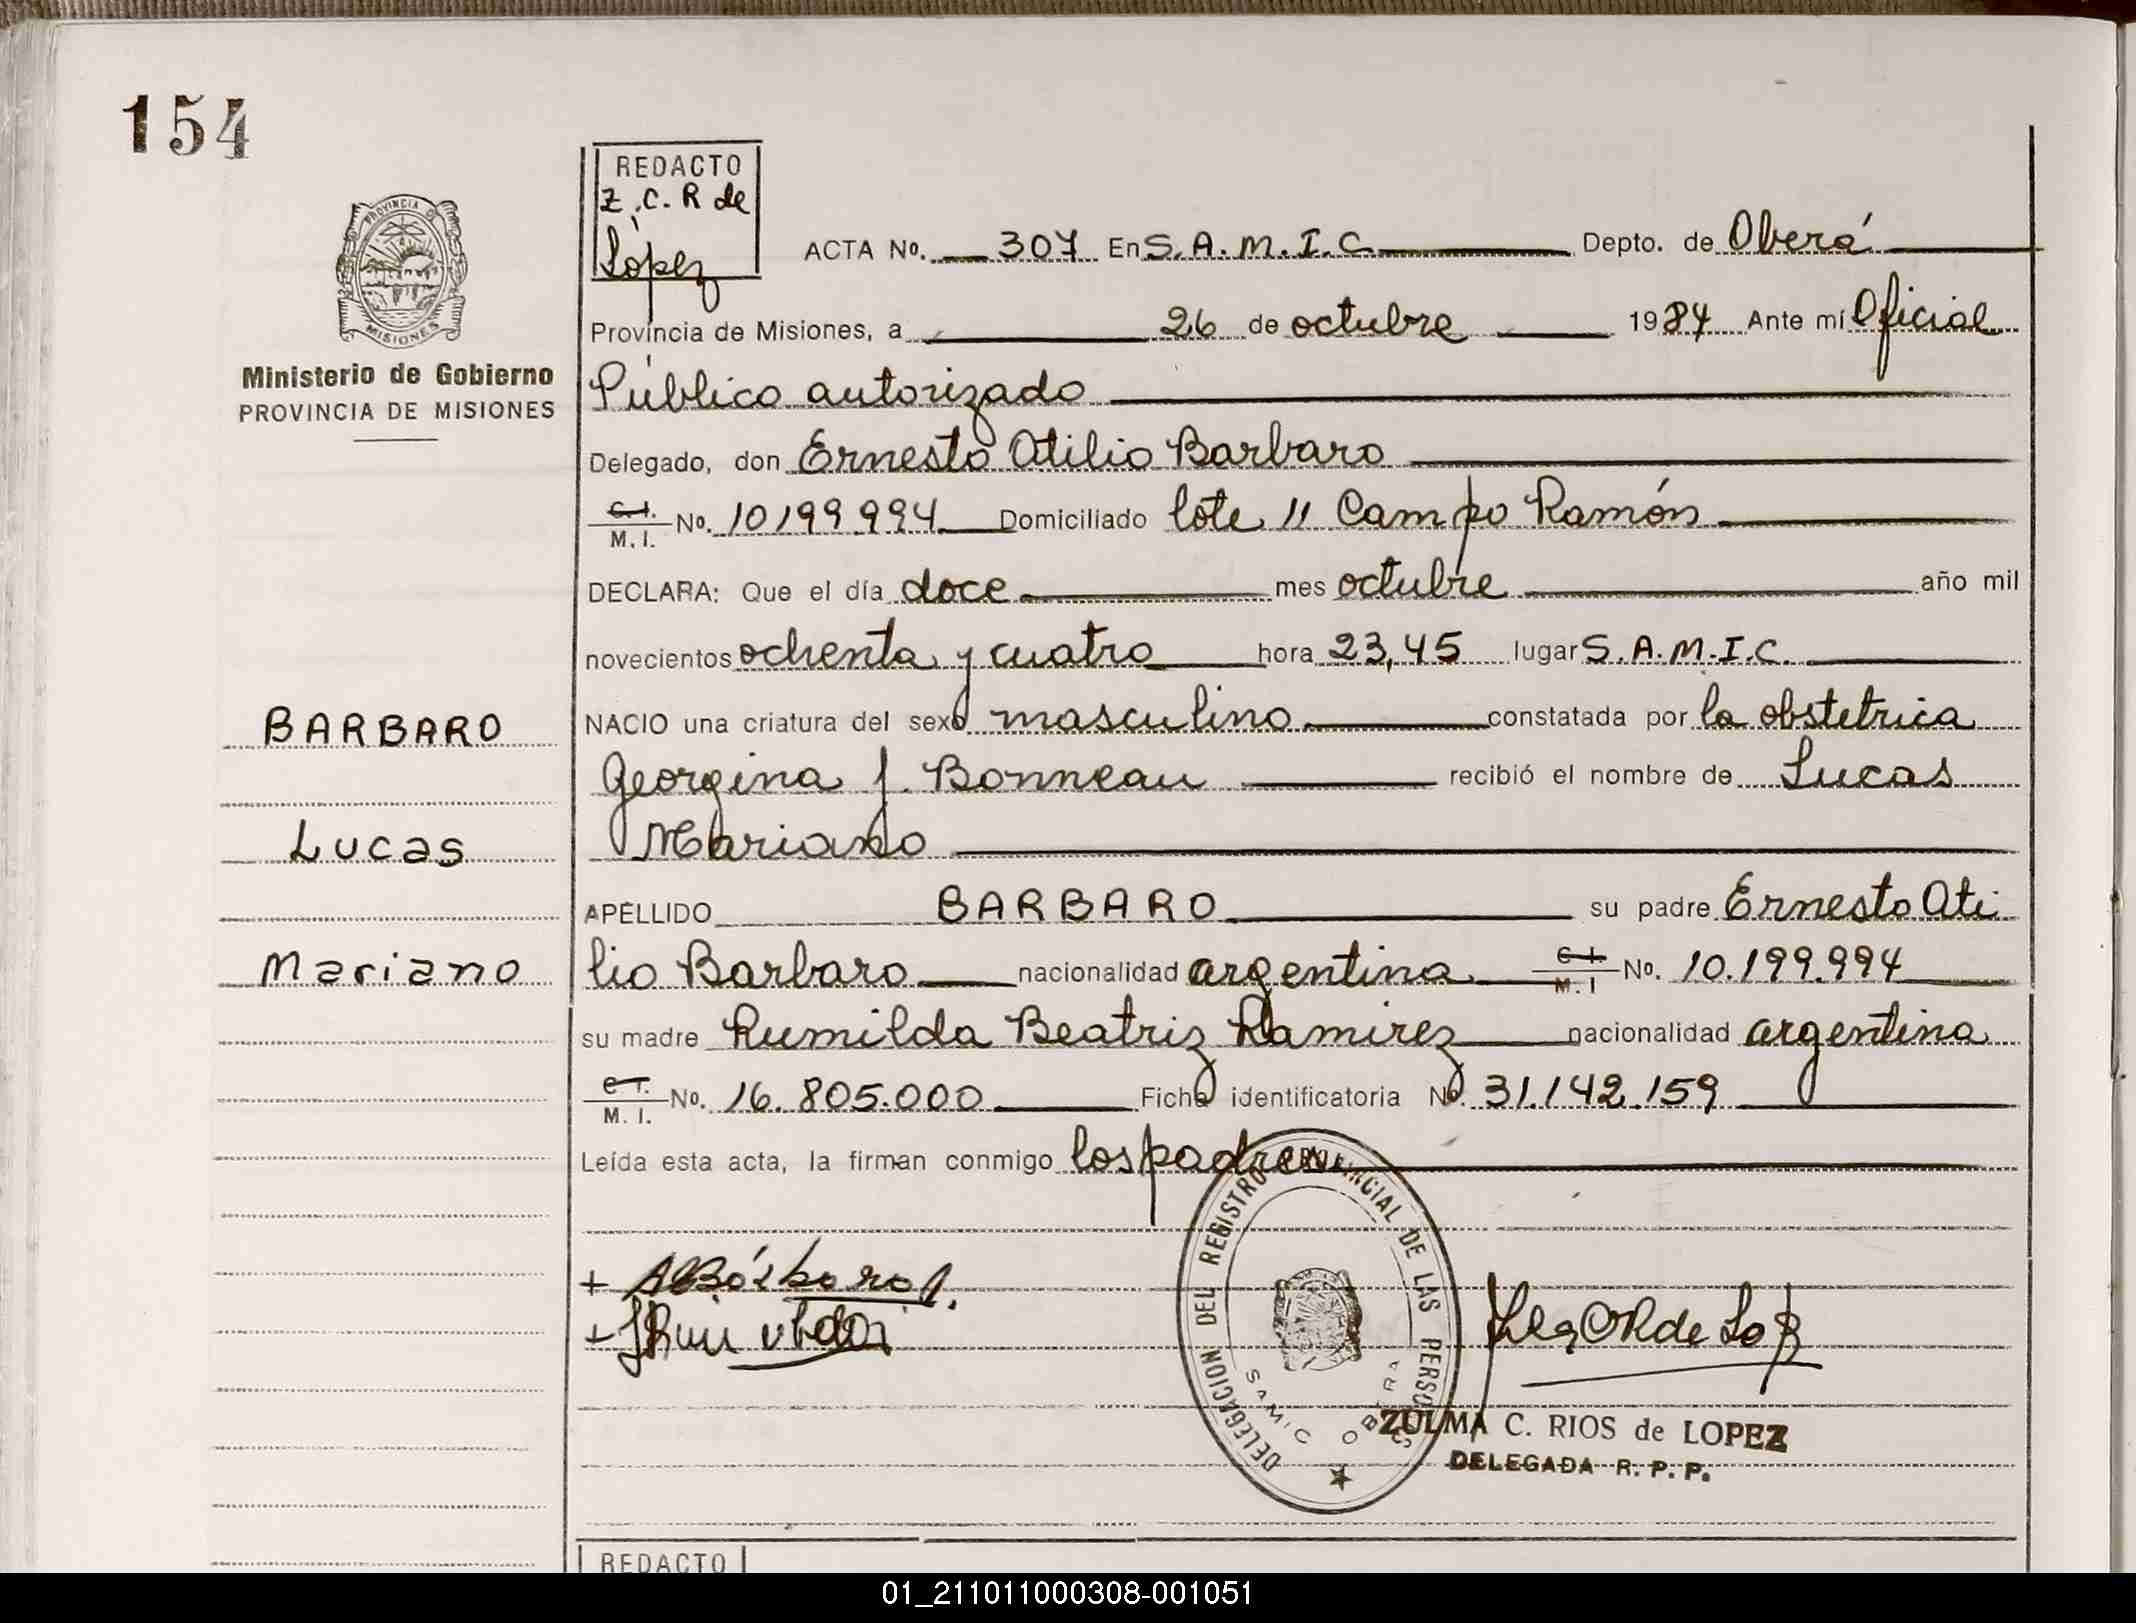 154
PROVINCIA DE
MISIONES
Ministerio de Gobierno
PROVINCIA DE MISIONES
REDACTO
Z.C.R de
López
ACTA No. 307 En S.A.M.I.C. Depto. de Oberá
Provincia de Misiones, a 26 de octubre 1984 Ante mí Oficial
Público autorizado
Delegado, don Ernesto Atilio Barbaro
C.I. M.I. No. 10199994 Domiciliado lote 11 Campo Ramón
DECLARA: Que el día doce mes octubre año mil
novecientos ochenta y cuatro hora 23,45 lugar S.A.M.I.C.
BARBARO
NACIO una criatura del sexo masculino constatada por la obstetrica
Georgina J. Bonneau recibió el nombre de Lucas
Lucas
Mariano
APELLIDO BARBARO su padre Ernesto Ati
Mariano
lio Barbaro nacionalidad argentina C.I. M.I No. 10.199.994
su madre Rumilda Beatriz Ramirez nacionalidad argentina
C.I. M.I. No. 16.805.000 Ficha identificatoria No. 31.142.159
Leída esta acta, la firman conmigo los padres
DELEGACION DEL REGISTRO PROVINCIAL DE LAS PERSONAS
SAMIC OBERA
ZULMA C. RIOS de LOPEZ
DELEGADA R. P. P.
REDACTO
01_211011000308-001051